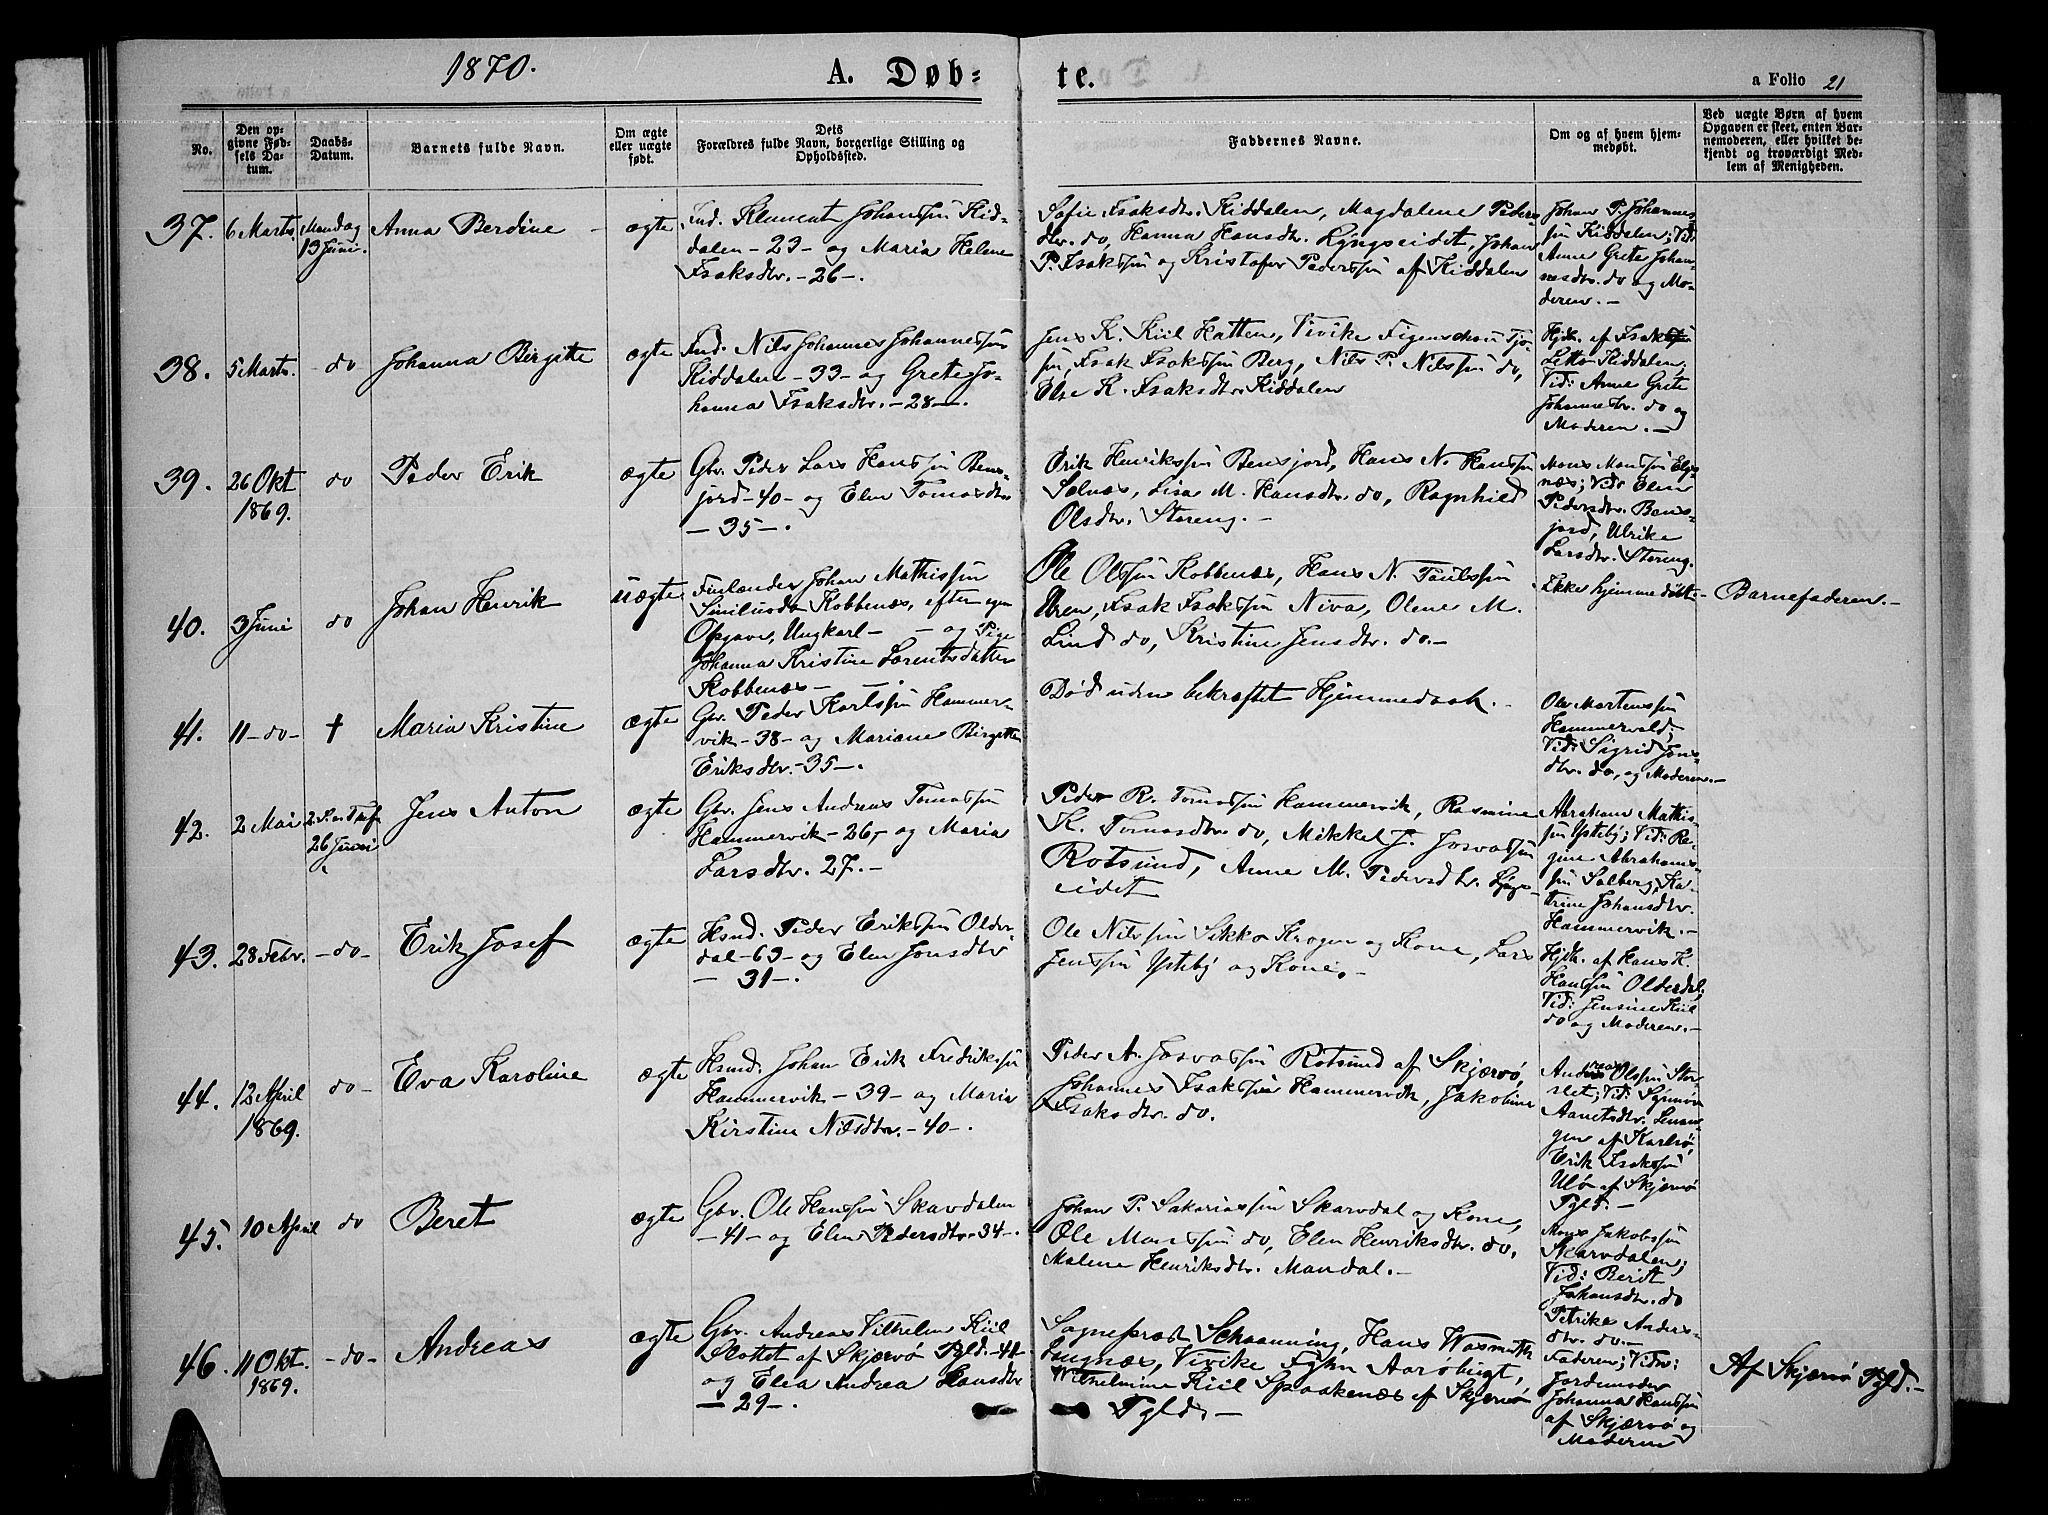 1870.
A. Døb-
te.
a Folio 21
No.
Den op-
givne Fød-
sels Da-
tum.
Daabs-
Datum.
Barnets fulde Navn.
Om ægte
eller uægte
født.
Dets
Forældres fulde Navn, borgerlige Stilling og
Opholdssted.
Faddernes Navne.
Om og af hvem hjem-
medøbt.
Ved uægte Børn af hvem
Opgaven er skeet, enten Bar-
nemoderen, eller hvilket be-
kjendt og troværdigt Med-
lem af Menigheden.
37.
6 Marts
Mandag
13 Juni.
Anna Berdine
ægte
Ind. Klement Johanssøn Kid-
dalen - 23 - og Maria Helene
Isaksdtr. - 26 -.
Sofie Isaksdtr. Kiddalen, Magdalene Peders-
dtr. do, Hanna Hansdtr. Lyngseidet, Johan
P. Isakssøn og Kristofer Pederssøn af Kiddalen
Johan P. Johannes
søn Kiddalen; Vid:
Anne Grete Johan-
nesdtr. do og Mo-
deren. -
38.
5 Marts.
do
Johanna Birgitte
ægte
Ind. Nils Johannes Johannessøn
Kiddalen - 33 - og Grete Jo-
hanna Isaksdtr. - 28 -.
Jens K. Kiil Hatten, Vivike Figenschou
søn, Isak Isakssøn Berg, Nils P. Nilssøn do,
Else K. Isaksdtr. Kiddalen
Hjdb. af Isakssøn
Kiddalen;
Vid: Anne Grete
Johannesdtr. do og
Moderen. -
39.
26 Okt
1869.
do
Peder Erik
ægte
Gbr. Peder Lars Hanssøn Bens-
jord - 40 - og Elen Tomasdtr
- 35 -.
Erik Henrikssøn Bensjord, Hans N. Hanssøn
Solnæs, Lisa M. Hansdtr. do, Ragnhild
Olsdtr. Storeng. -
Mons Monssøn Elge-
næs; Vid: Elen
Pedersdtr. Bens-
jord, Ulrika
Larsdtr. Storeng.
40.
3 Juni
do
Johan Henrik
uægte
Finlænder Johan Mathissøn
Kobbenæs, efter egen
Opgave, Ungkarl - - og Pige
Johanna Kristine Lorentsdatter
Kobbenæs - -.
Ole Olssøn Kobbenæs, Hans N. Paulssøn
Uren, Isak Isakssøn Niva, Olene M.
Lind do, Kristine Jensdtr. do. -
Ikke hjemmedøbt -
Barnefaderen. -
41.
11 - do -
†
Maria Kristine
ægte
Gbr. Peder Karlssøn Hammer-
vik - 38 - og Mariane Birgitte
Eriksdtr. - 35 -.
Død uden bekræftet Hjemmedaab. -
Ole Mortenssøn
Hammervold;
Vid: Sigrid Jons-
dtr. do, og Moderen. -
42.
2 Mai
2. S. e. Tref.
26 Juni
Jens Anton
ægte
Gbr. Jens Andreas Tomassøn
Hammervik - 26, - og Maria
Larsdtr. 27. -
Peder R. Tomassøn Hammervik, Rasmine
K. Tomasdtr. do, Mikkel J. Josvassøn
Rotsund, Anne M. Pedersdtr. Lyngs-
eidet
Abraham Mathis-
søn Ysteby; Vid: Ra-
gine Abrahams-
søn Solberg, Ka-
trine Johansdtr.
Hammervik. -
43.
28 Febr.
- do -
Erik Josef
ægte
Hsmd. Peder Erikssøn Older-
dal - 63 - og Elen Jonsdtr
- 31 -.
Ole Nilssøn Sikko Krogen og Kone, Lars
Jenssøn Ysteby og Kone. -
Hjdb. af Hans K.
Hanssøn Olderdal;
Vid: Jensine Kiil
do og Moderen. -
44.
12 April
1869.
do -
Eva Karoline
ægte
Hsmd. Johan Erik Fredrikssøn
Hammervik - 39 - og Maria
Kirstine Nilsdtr. - 40 -.
Peder A. Josvassøn Rotsund af Skjærvø,
Johannes Isakssøn Hammervik, Jakobine
Isaksdtr. do.
Andreas Olssøn Stors-
let; Vid: Synnøva
Aanetsdtr. Lenan-
gen af Karlsø,
Erik Isakssøn
Ulø af Skjærvø
Pgld. -
45.
10 April
do
Beret
ægte
Gbr. Ole Hanssøn Skavdalen
- 41 - og Elen Pedersdtr. - 34 -.
Johan P. Sakariassøn Skarvdal og Kone,
Ole Monssøn do, Elen Henriksdtr. do.
Malene Henriksdtr. Mandal. -
Mons Jakobssøn
Skarvdalen;
Vid: Berit
Johansdtr. do
Petrika Anders-
dtr. do. -
46.
11 Okt.
1869.
- do -
Andreas
ægte
Gbr. Andreas Vilhelm Kiil
Slottet af Skjærvø Pgld. - 44
og Elea Andrea Hansdtr
- 29 -.
Sogneprest Schaanning, Hans Wasmuth
Lyngnæs, Vivike Fyhn Aarøbugt,
Wilhelmine Kiil Spaakenæs af Skjærvø
Pgld. -
Faderen; Vid:
Jordemoder
Johanna Hanssøn
af Skjærvø og
Moderen
Af Skjærvø Pgld. -